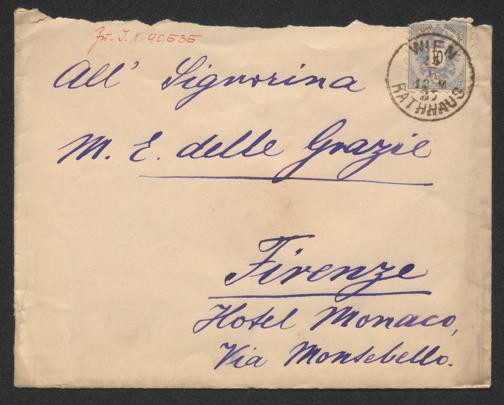 Zu I.N. 90.535
All' Signorina
M. E. delle Grazie
Firenze
Hotel Monaco,
Via Montebello.
WIEN
RATHHAUS